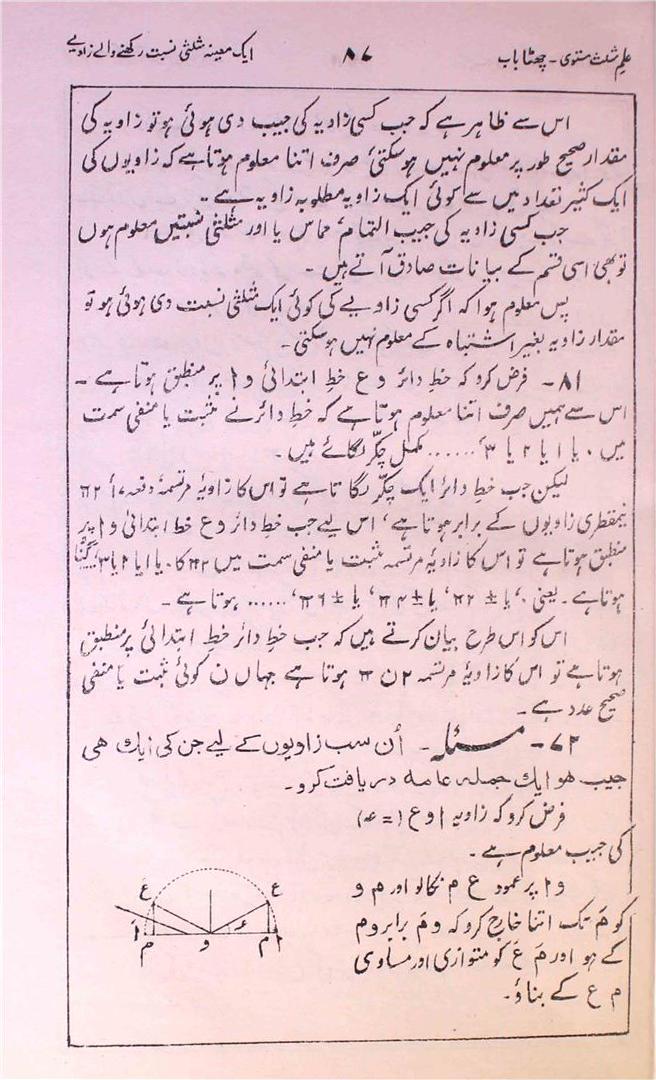 علم مثلث مستوی - چھٹا باب ۸۷ ایک معینہ مثلثی نسبت رکھنے والے زاویے
اس سے ظاہر ہے کہ جب کسی زاویہ کی جیب دی ہوئی ہو تو زاویہ کی
مقدار صحیح طور پر معلوم نہیں ہوسکتی، صرف اتنا معلوم ہوتا ہے کہ زاویوں کی
ایک کثیر تعداد میں سے کوئی ایک زاویہ مطلوبہ زاویہ ہے ۔
جب کسی زاویہ کی جیب التمام، مماس یا اور مثلثی نسبتیں معلوم ہوں
تو بھی اسی قسم کے بیانات صادق آتے ہیں ۔
پس معلوم ہوا کہ اگر کسی زاویے کی کوئی ایک مثلثی نسبت دی ہوئی ہو تو
مقدار زاویہ بغیر اشتباہ کے معلوم نہیں ہوسکتی ۔
۸۱- فرض کرو کہ خطِ دائر و ع خطِ ابتدائی و ا پر منطبق ہوتا ہے ۔
اس سے ہمیں صرف اتنا معلوم ہوتا ہے کہ خطِ دائر نے مثبت یا منفی سمت
میں ۰ یا ۱ یا ۲ یا ۳، ...... مکمل چکر لگائے ہیں ۔
لیکن جب خطِ دائر ایک چکر لگاتا ہے تو اس کا زاویۂ مرتسمہ دفعہ ۱۷، ۲π
نیمقطری زاویوں کے برابر ہوتا ہے، اس لیے جب خط دائر و ع خط ابتدائی و ا پر
منطبق ہوتا ہے تو اس کا زاویۂ مرتسمہ مثبت یا منفی سمت میں ۲π کا ۰ یا ۱ یا ۲ یا ۳، گنا
ہوتا ہے ۔ یعنی ۰، یا ± ۲π، یا ± ۴π، یا ± ۶π، ...... ہوتا ہے ۔
اس کو اس طرح بیان کرتے ہیں کہ جب خطِ دائر خطِ ابتدائی پر منطبق
ہوتا ہے تو اس کا زاویۂ مرتسمہ ۲ن π ہوتا ہے جہاں ن کوئی مثبت یا منفی
صحیح عدد ہے ۔
۷۲- مسئلہ - اُن سب زاویوں کے لیے جن کی ایک ھی
جیب ھو ایک جملہ عامہ دریافت کرو ۔
فرض کرو کہ زاویہ ا و ع (= عہ)
کی جیب معلوم ہے ۔
و ا پر عمود ع م نکالو اور م و
کو مَ تک اتنا خارج کرو کہ و مَ برابر و م
کے ہو اور مَ عَ کو متوازی اور مساوی
م ع کے بناؤ ۔
عَ ع
اَ مَ و عہ م ا